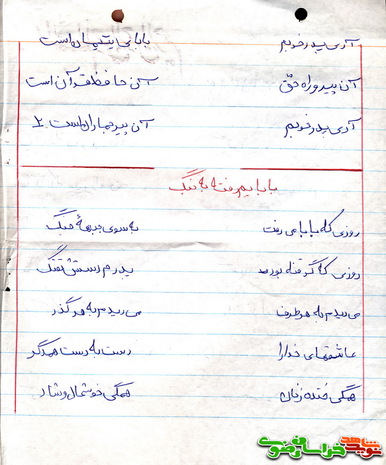 آری پدر خوبم بابایی یتیمان است
آن پیرو راه حق آن حافظ قرآن است
آری پدر خوبم آن پیر جماران است
بابایم رفته به جنگ
روزی که بابا می رفت به سوی جبهه جنگ
روزی که گرفته بود پدرم دستش تفنگ
می دیدم به هر طرف می دیدم به هر گذر
عاشقهای خدا را دست به دست همدگر
همگی خنده زنان همگی خوشحال و شاد
نوید شاهد خراسان رضوی